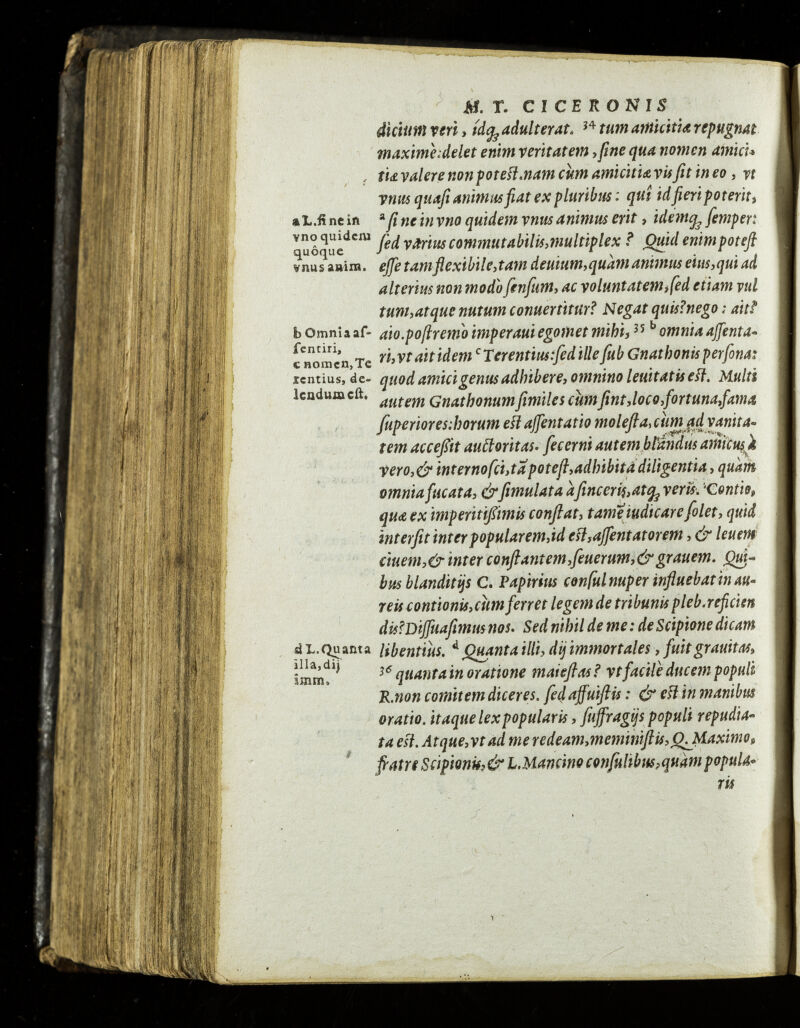 M. T. CICERONIS
dicium veri, idq́; adulterat. 34 tum amicitiæ repugnat
maximè: delet enim veritatem, sine qua nomen amici-
tiæ valere non potest. nam cùm amicitiæ vis sit in eo, vt
vnus quasi animus fiat ex pluribus: quî id fieri poterit,
a si ne in vno quidem vnus animus erit, idemq́; semper:
sed varius commutabilis, multiplex? Quid enim potest
esse tam flexibile, tam deuium, quàm animus eius, qui ad
alterius non modò sensum, ac voluntatem, sed etiam vul
tum, atque nutum conuertitur? Negat quis? nego: ait?
aio. postremò imperaui egomet mihi, 35 b omnia assenta-
ri, vt ait idem c Terentius: sed ille sub Gnathonis persona:
quod amici genus adhibere, omnino leuitatis est. Multi
autem Gnathonum similes cùm sint, loco, fortuna, fama
superiores: horum est assentatio molesta, cùm ad vanita-
tem accessit auctoritas. secerni autem blandus amicus à
vero, & internosci, tā potest, adhibita diligentia, quàm
omnia fucata, & simulata à sinceris, atq; veris. Contio,
quæ ex imperitissimis constat, tamē iudicare solet, quid
intersit inter popularem, id est, assentatorem, & leuem
ciuem, & inter constantem, seuerum, & grauem. Qui-
bus blanditijs C. Papirius consul nuper influebat in au-
reis contionis, cùm ferret legem de tribunis pleb. reficien
dis? Dissuasimus nos. Sed nihil de me: de Scipione dicam
libentiùs. d Quanta illi, dij immortales, fuit grauitas,
36 quanta in oratione maiestas? vt facilè ducem populi
R. non comitem diceres. sed affuistis: & est in manibus
oratio. itaque lex popularis, suffragijs populi repudia-
ta est. Atque, vt ad me redeam, meministis, Q. Maximo,
fratre Scipionis, & L. Mancino consulibus, quàm popula-
ris
a L. si ne in
vno quidem
quôque
vnus anim.
b Omnia as-
sentiri,
c nomen, Te
rentius, de-
lendum est.
d L. Quanta
illa, dij
imm.